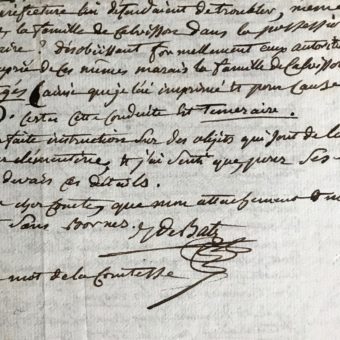 préfecture lui défendaient de troubler, même
la famille de Calvisson dans la possession
désobéissant formellement aux autorités
de ces mêmes marais la famille de Calvisson
(ainsi que je lui imprimé et pour cause
certes cette conduite est téméraire.
faite instruction sur des objets qui sont de la
élémentaire, & j'ai senti que, pour ses
devais ces détails.
cher Comte, que mon attachement
Sans bornes. de Batz
mot de la Comtesse